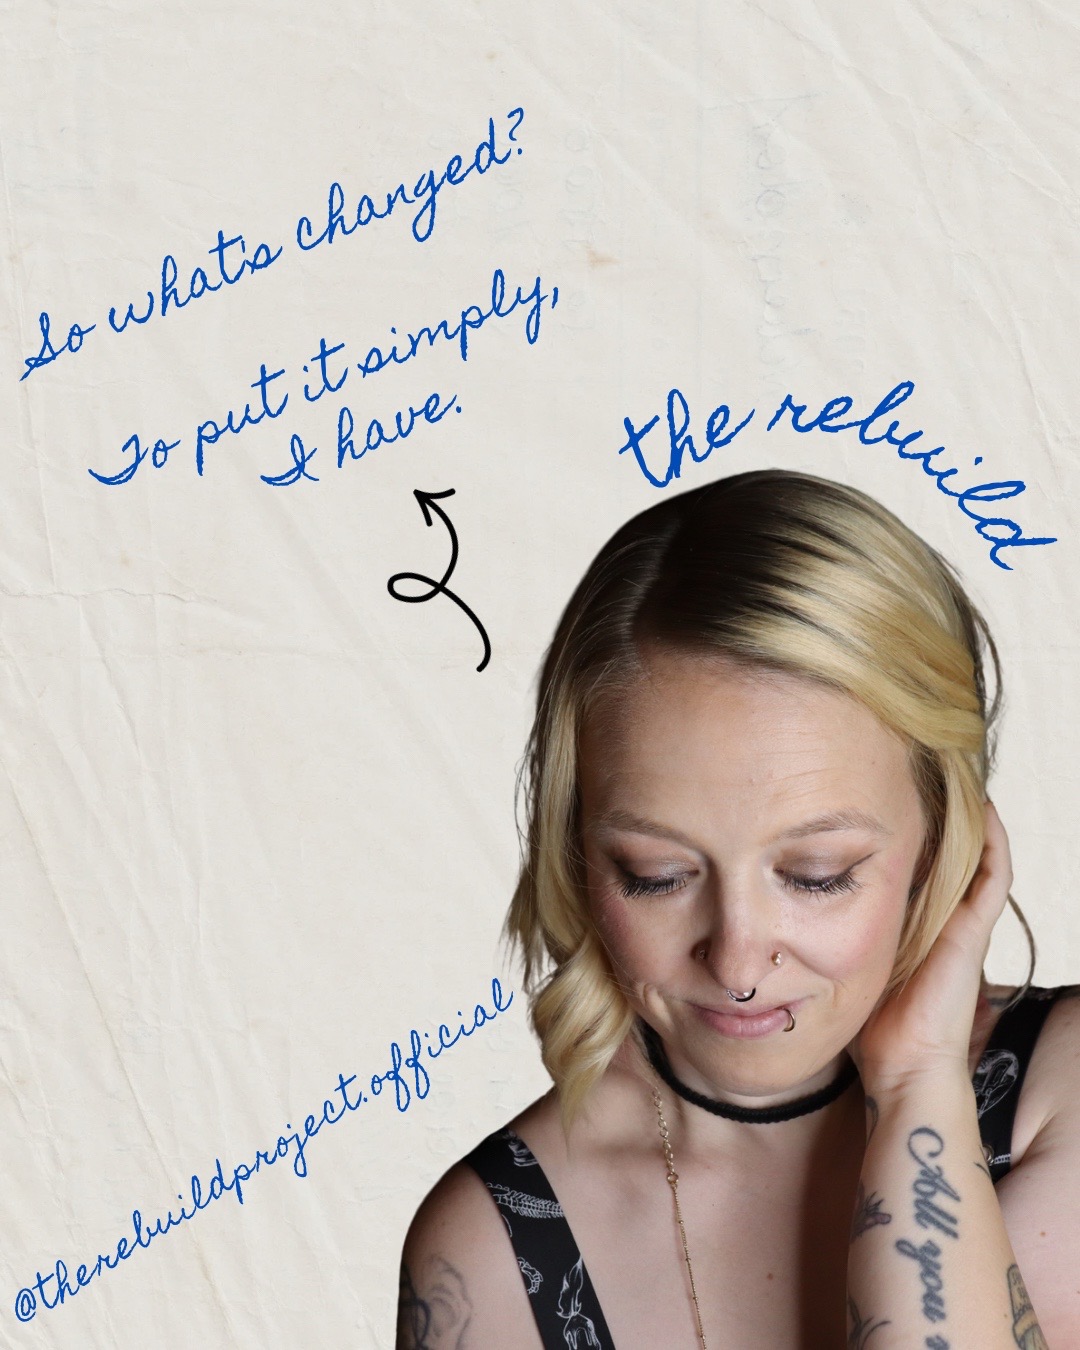 So what's changed?
To put it simply,
I have.
the rebuild
@therebuildproject.official
All you